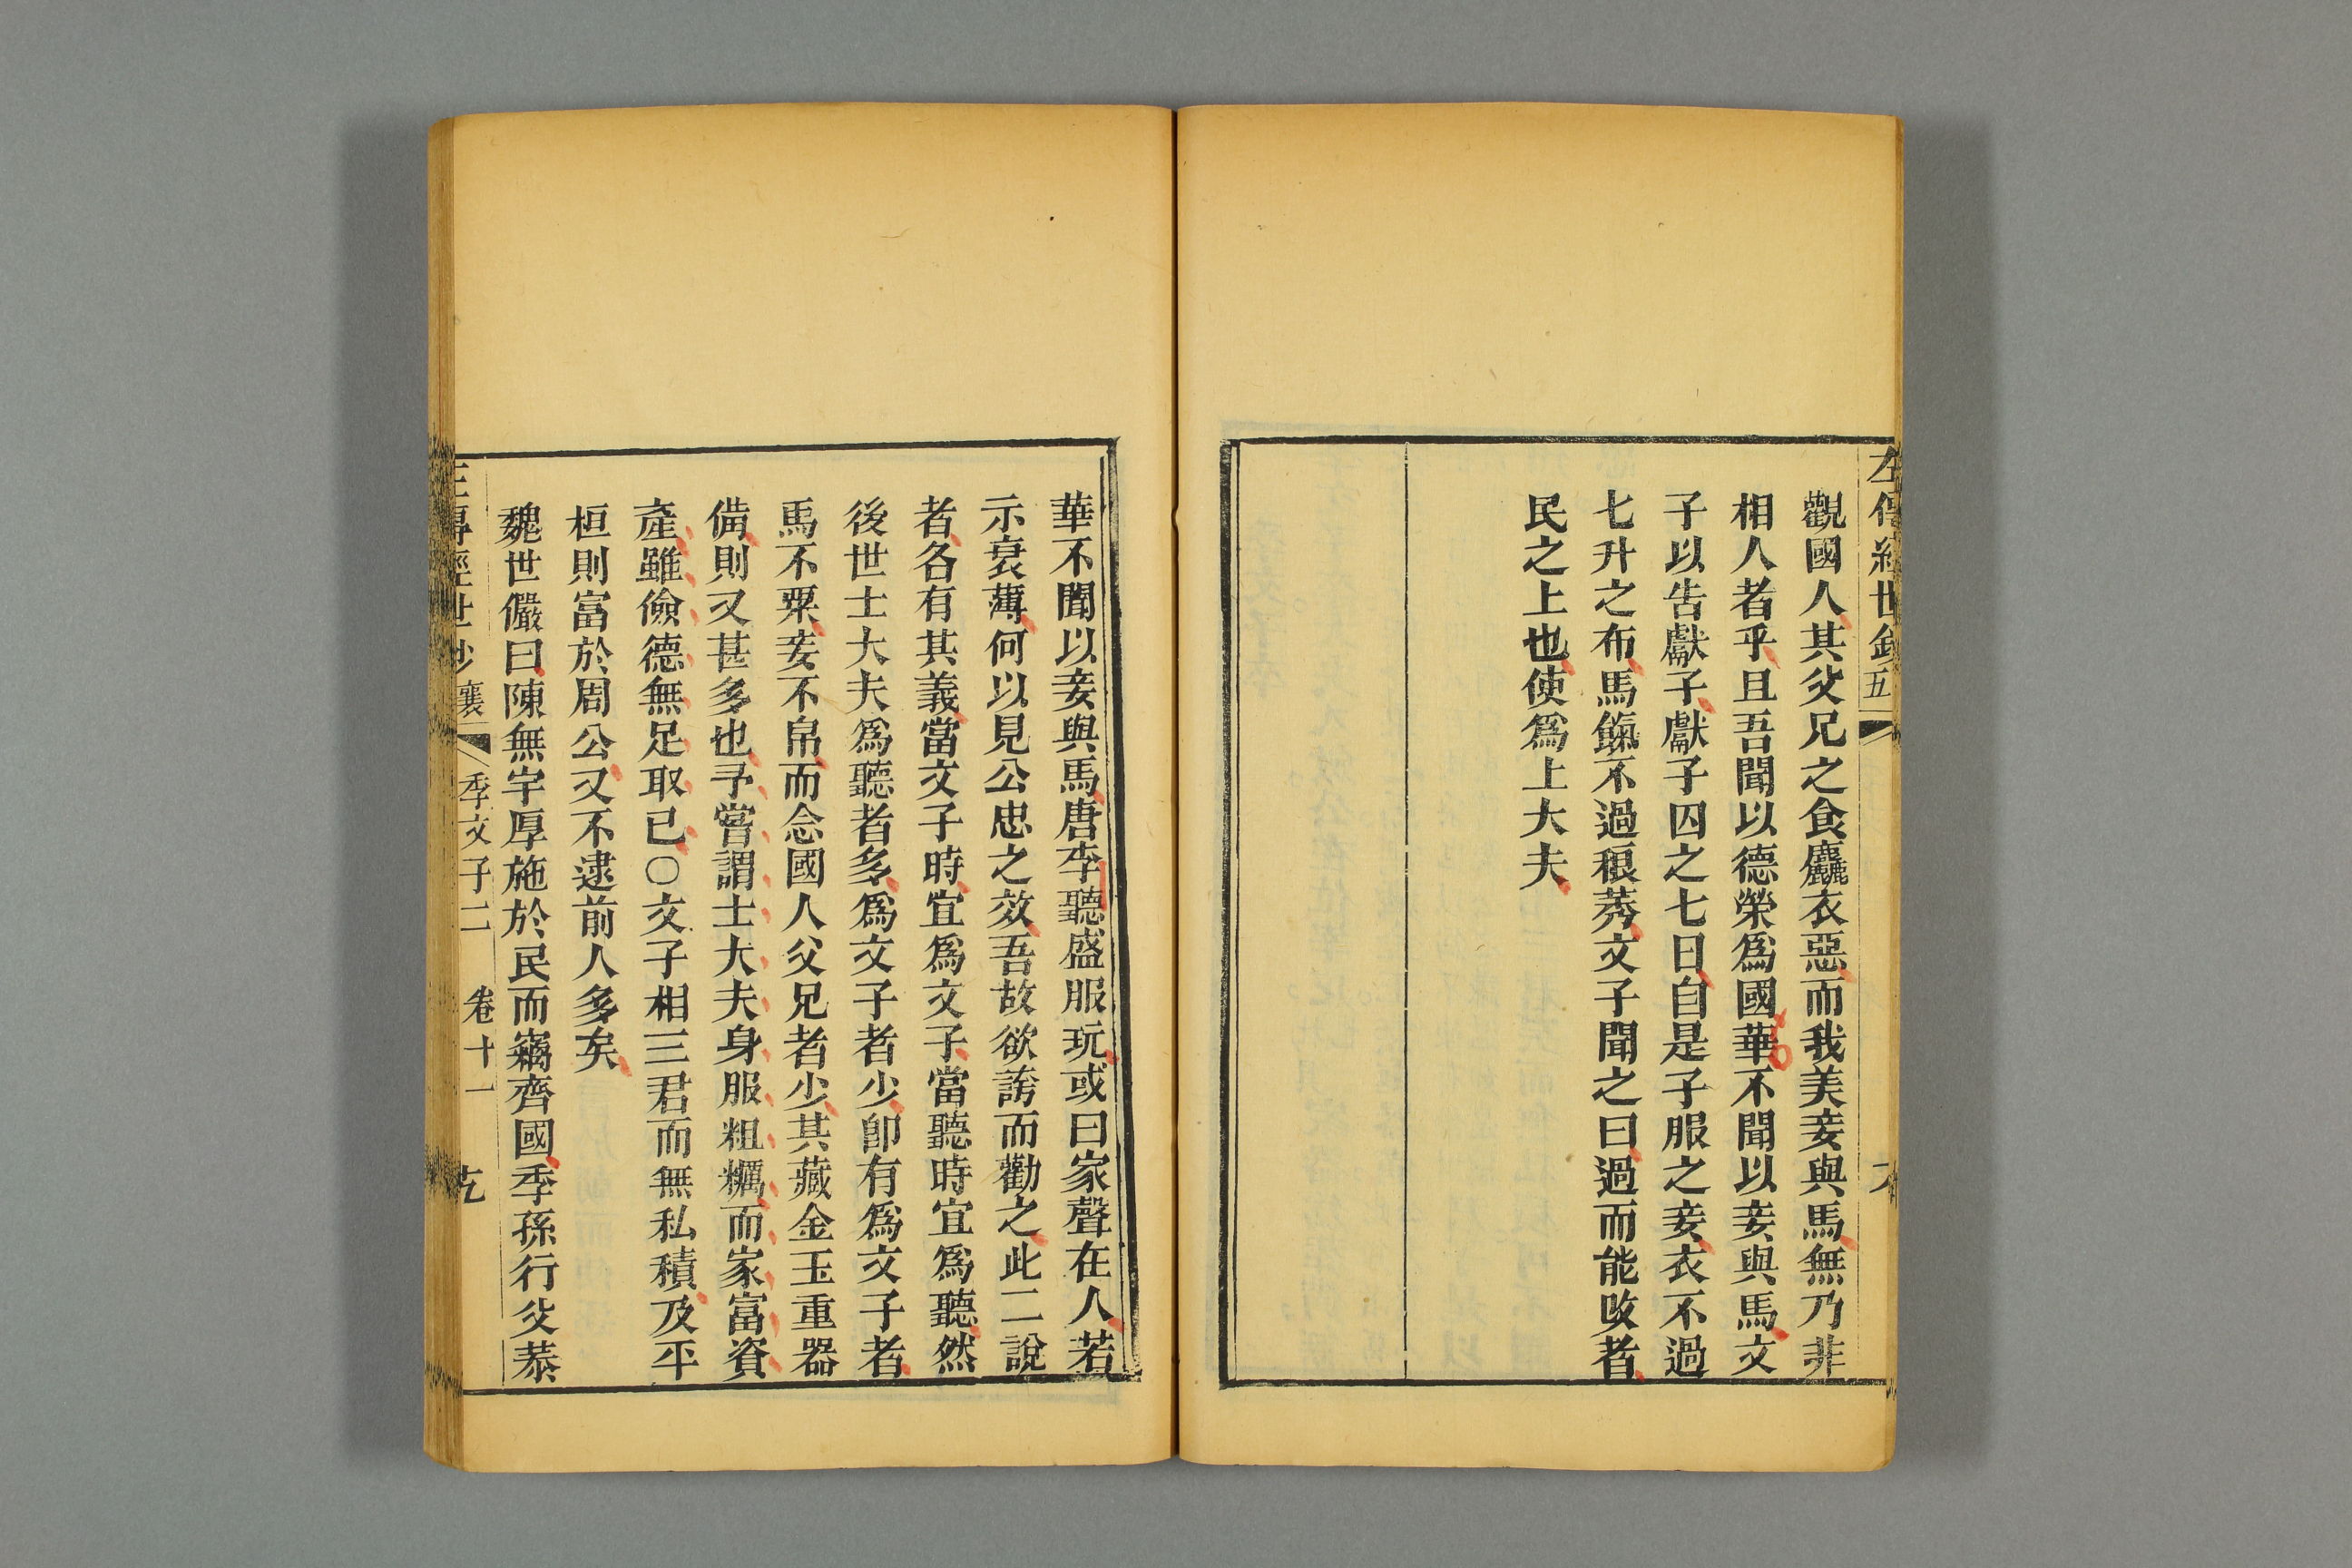 左傳經世鈔五
觀國人其父兄之食麤衣惡而我美妾與馬無乃非
相人者乎且吾聞以德榮爲國華不聞以妾與馬文
子以告獻子獻子囚之七日自是子服之妾衣不過
七升之布馬餼不過稂莠文子聞之曰過而能改者
民之上也使爲上大夫
華不聞以妾與馬唐李聽盛服玩或曰家聲在人若
示衰薄何以見公忠之效吾故欲誇而勸之此二說
者各有其義當文子時宜爲文子當聽時宜爲聽然
後世士大夫爲聽者多爲文子者少卽有爲文子者
馬不粟妾不帛而念國人父兄者少其藏金玉重器
備則又甚多也予嘗謂士大夫身服粗糲而家富資
產雖儉德無足取已○文子相三君而無私積及平
桓則富於周公又不逮前人多矣
魏世儼曰陳無宇厚施於民而竊齊國季孫行父恭
左傳經世鈔 襄 季文子二 卷十一